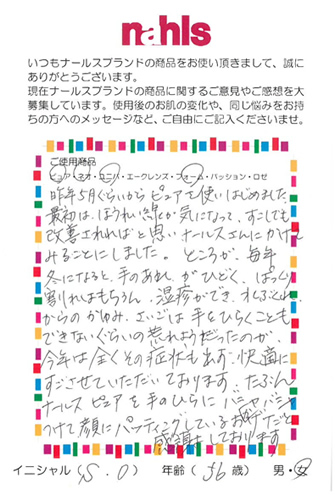 nahls
いつもナールスブランドの商品をお使い頂きまして、誠に
ありがとうございます。
現在ナールスブランドの商品に関するご意見やご感想を大
募集しています。使用後のお肌の変化や、同じ悩みをお持
ちの方へのメッセージなど、ご自由にご記入くださいませ。
ご使用商品
ピュア・ネオ・ユニバ・エークレンズ・フォーム・パッション・ロゼ
昨年5月くらいから ピュアを使いはじめました。
最初は、ほうれい線が気になって、すこしでも
改善されればと思いナールスさんにかけて
みることにしました。ところが、毎年
冬になると、手のあれがひどく、ぱっくり
割れはもちろん、湿疹ができ、
からのかゆみ、さいごは手をひらくことも
できないぐらいの荒れようだったのが
今年は全くその症状も出ず、快適に
すごさせていただいております。たぶん
ナールスピュアを手のひらにバシャバシャ
つけて顔にパッティングしているおかげだと
感謝をしております
イニシャル (S . O) 年齢 (56歳) 男・女